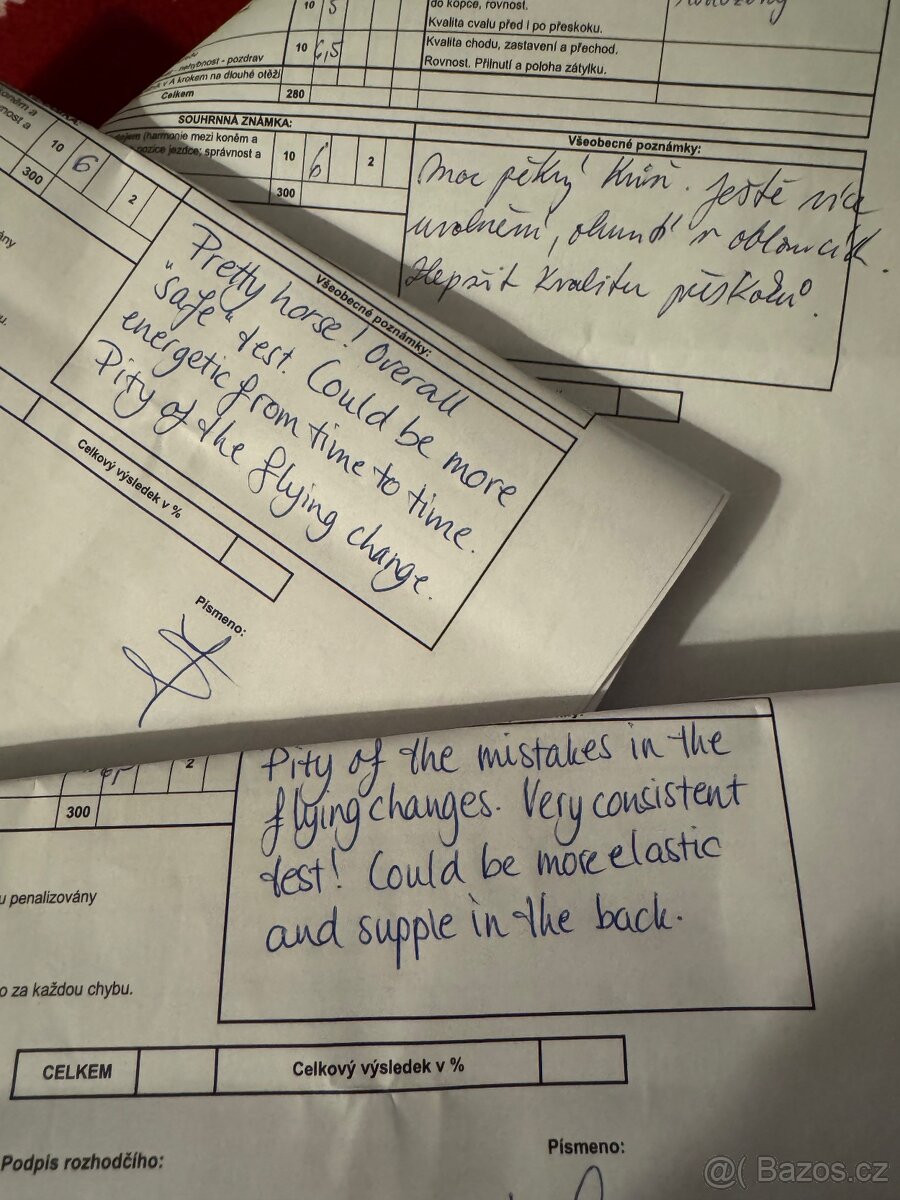 10 5
do kopce, rovnost.
Kvalita cvalu před i po přeskoku.
10 6,5
Kvalita chodu, zastavení a přechod.
Rovnost. Přilnutí a poloha zátylku.
nehybnost - pozdrav
v A krokem na dlouhé otěži
Celkem 280
SOUHRNNÁ ZNÁMKA:
(harmonie mezi koněm a
pozice jezdce; správnost a
10 6 2
300
Všeobecné poznámky:
Moc pěkný kůň. Ještě více
uvolnění, ohnutí v obloucích.
Zlepšit kvalitu přeskoků.
koněm a
10 6 2
300
Všeobecné poznámky:
Pretty horse! Overall
"safe" test. Could be more
energetic from time to time.
Pity of the flying change.
Celkový výsledek v %
Písmeno:
2
300
Pity of the mistakes in the
flying changes. Very consistent
test! Could be more elastic
and supple in the back.
u penalizovány
o za každou chybu.
CELKEM Celkový výsledek v %
Podpis rozhodčího: Písmeno:
@( Bazos.cz